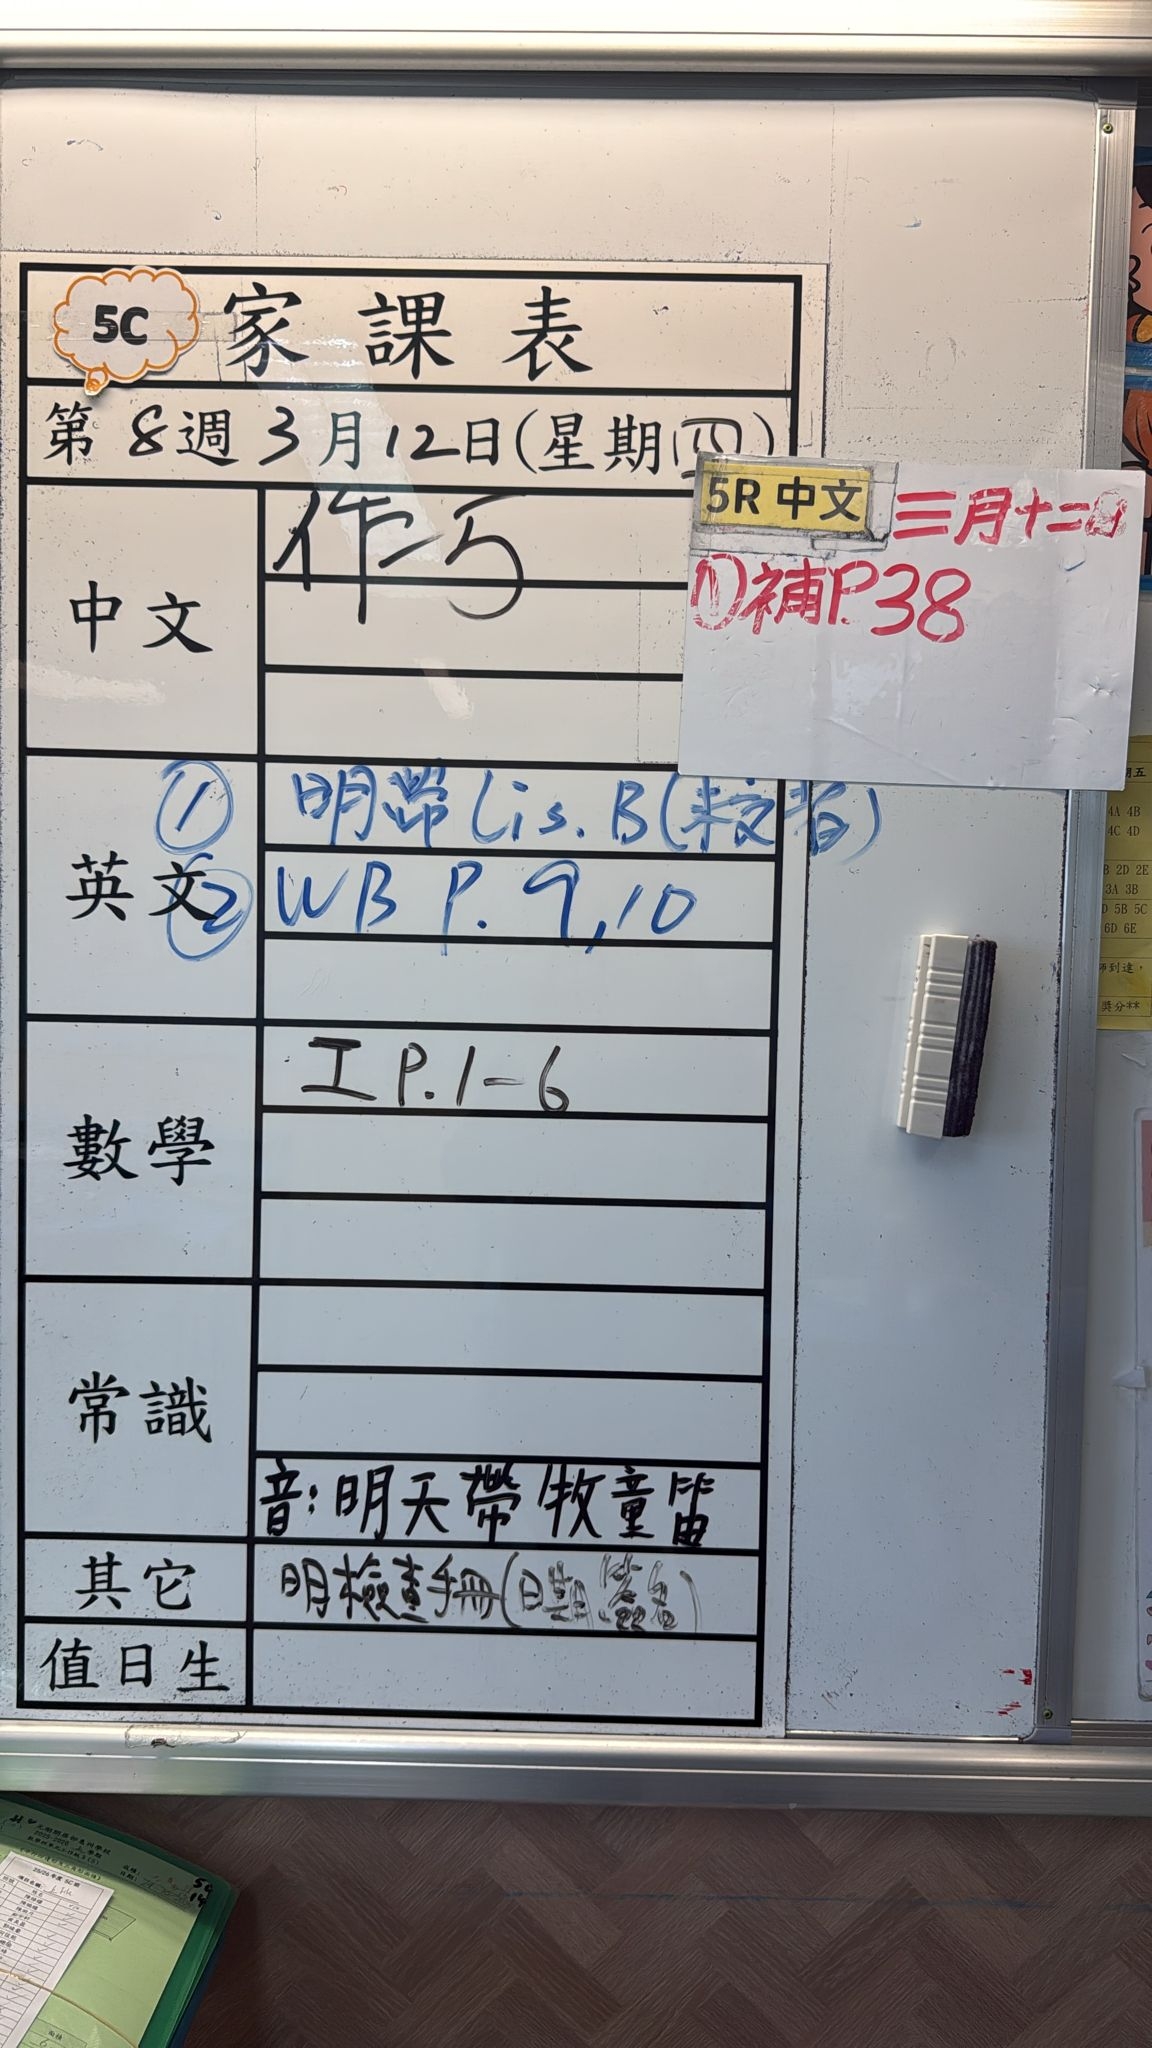 5C 家課表
第8週3月12日(星期四)
5R 中文 三月十二日
①補P.38
中文
作5
英文
① 明帶 Lis. B (未交者)
② WB P. 9,10
數學
工 P.1-6
常識
音:明天帶牧童笛
其它
明檢查手冊(日期,簽名)
值日生
期五
4A 4B
4C 4D
2D 2E
3A 3B
5B 5C
6D 6E
師到達,
獎分**